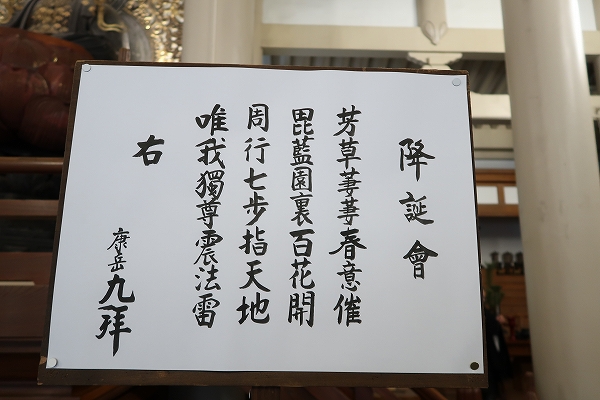 降誕會
芳草萋萋春意催
毘藍園裏百花開
周行七步指天地
唯我獨尊震法雷
右
康岳九拜